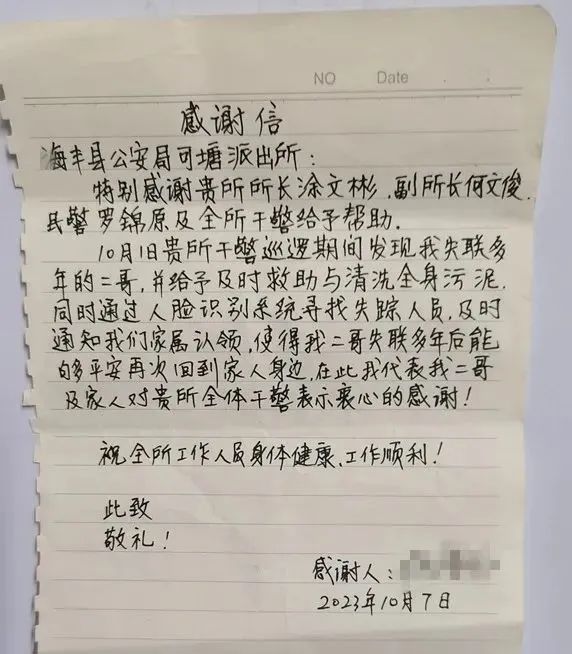 NO Date
感谢信
海丰县公安局可塘派出所：
特别感谢贵所所长涂文彬、副所长何文俊、
民警罗锦原及全所干警给予帮助.
10月1日贵所干警巡逻期间发现我失联多
年的二哥,并给予及时救助与清洗全身污泥.
同时通过人脸识别系统寻找失踪人员,及时
通知我们家属认领,使得我二哥失联多年后能
够平安再次回到家人身边,在此我代表我二哥
及家人对贵所全体干警表示衷心的感谢!
祝全所工作人员身体健康、工作顺利!
此致
敬礼!
感谢人:
2023年10月7日